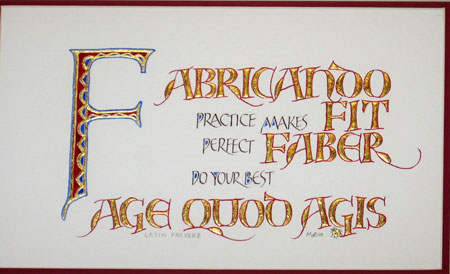 FABRICANDO
PRACTICE MAKES FIT
PERFECT FABER
DO YOUR BEST
AGE QUOD AGIS
LATIN PROVERB